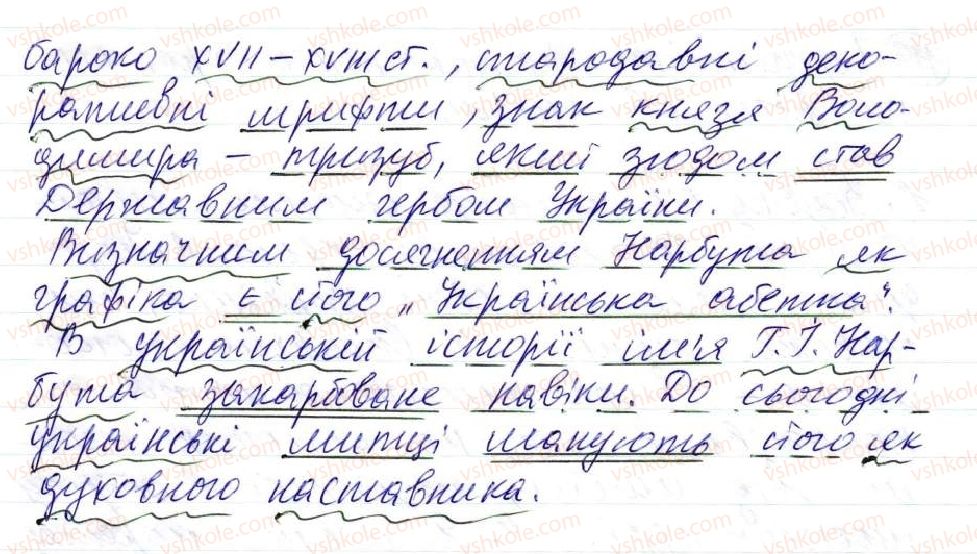 бароко XVII – XVIII ст., стародавні деко-
ративні шрифти, знак князя Воло-
димира – тризуб, який згодом став
Державним гербом України.
Визначним досягненням Нарбута як
графіка є його „Українська абетка".
В українській історії ім'я Г.І. Нар-
бута закарбоване навіки. До сьогодні
українські митці шанують його як
духовного наставника.